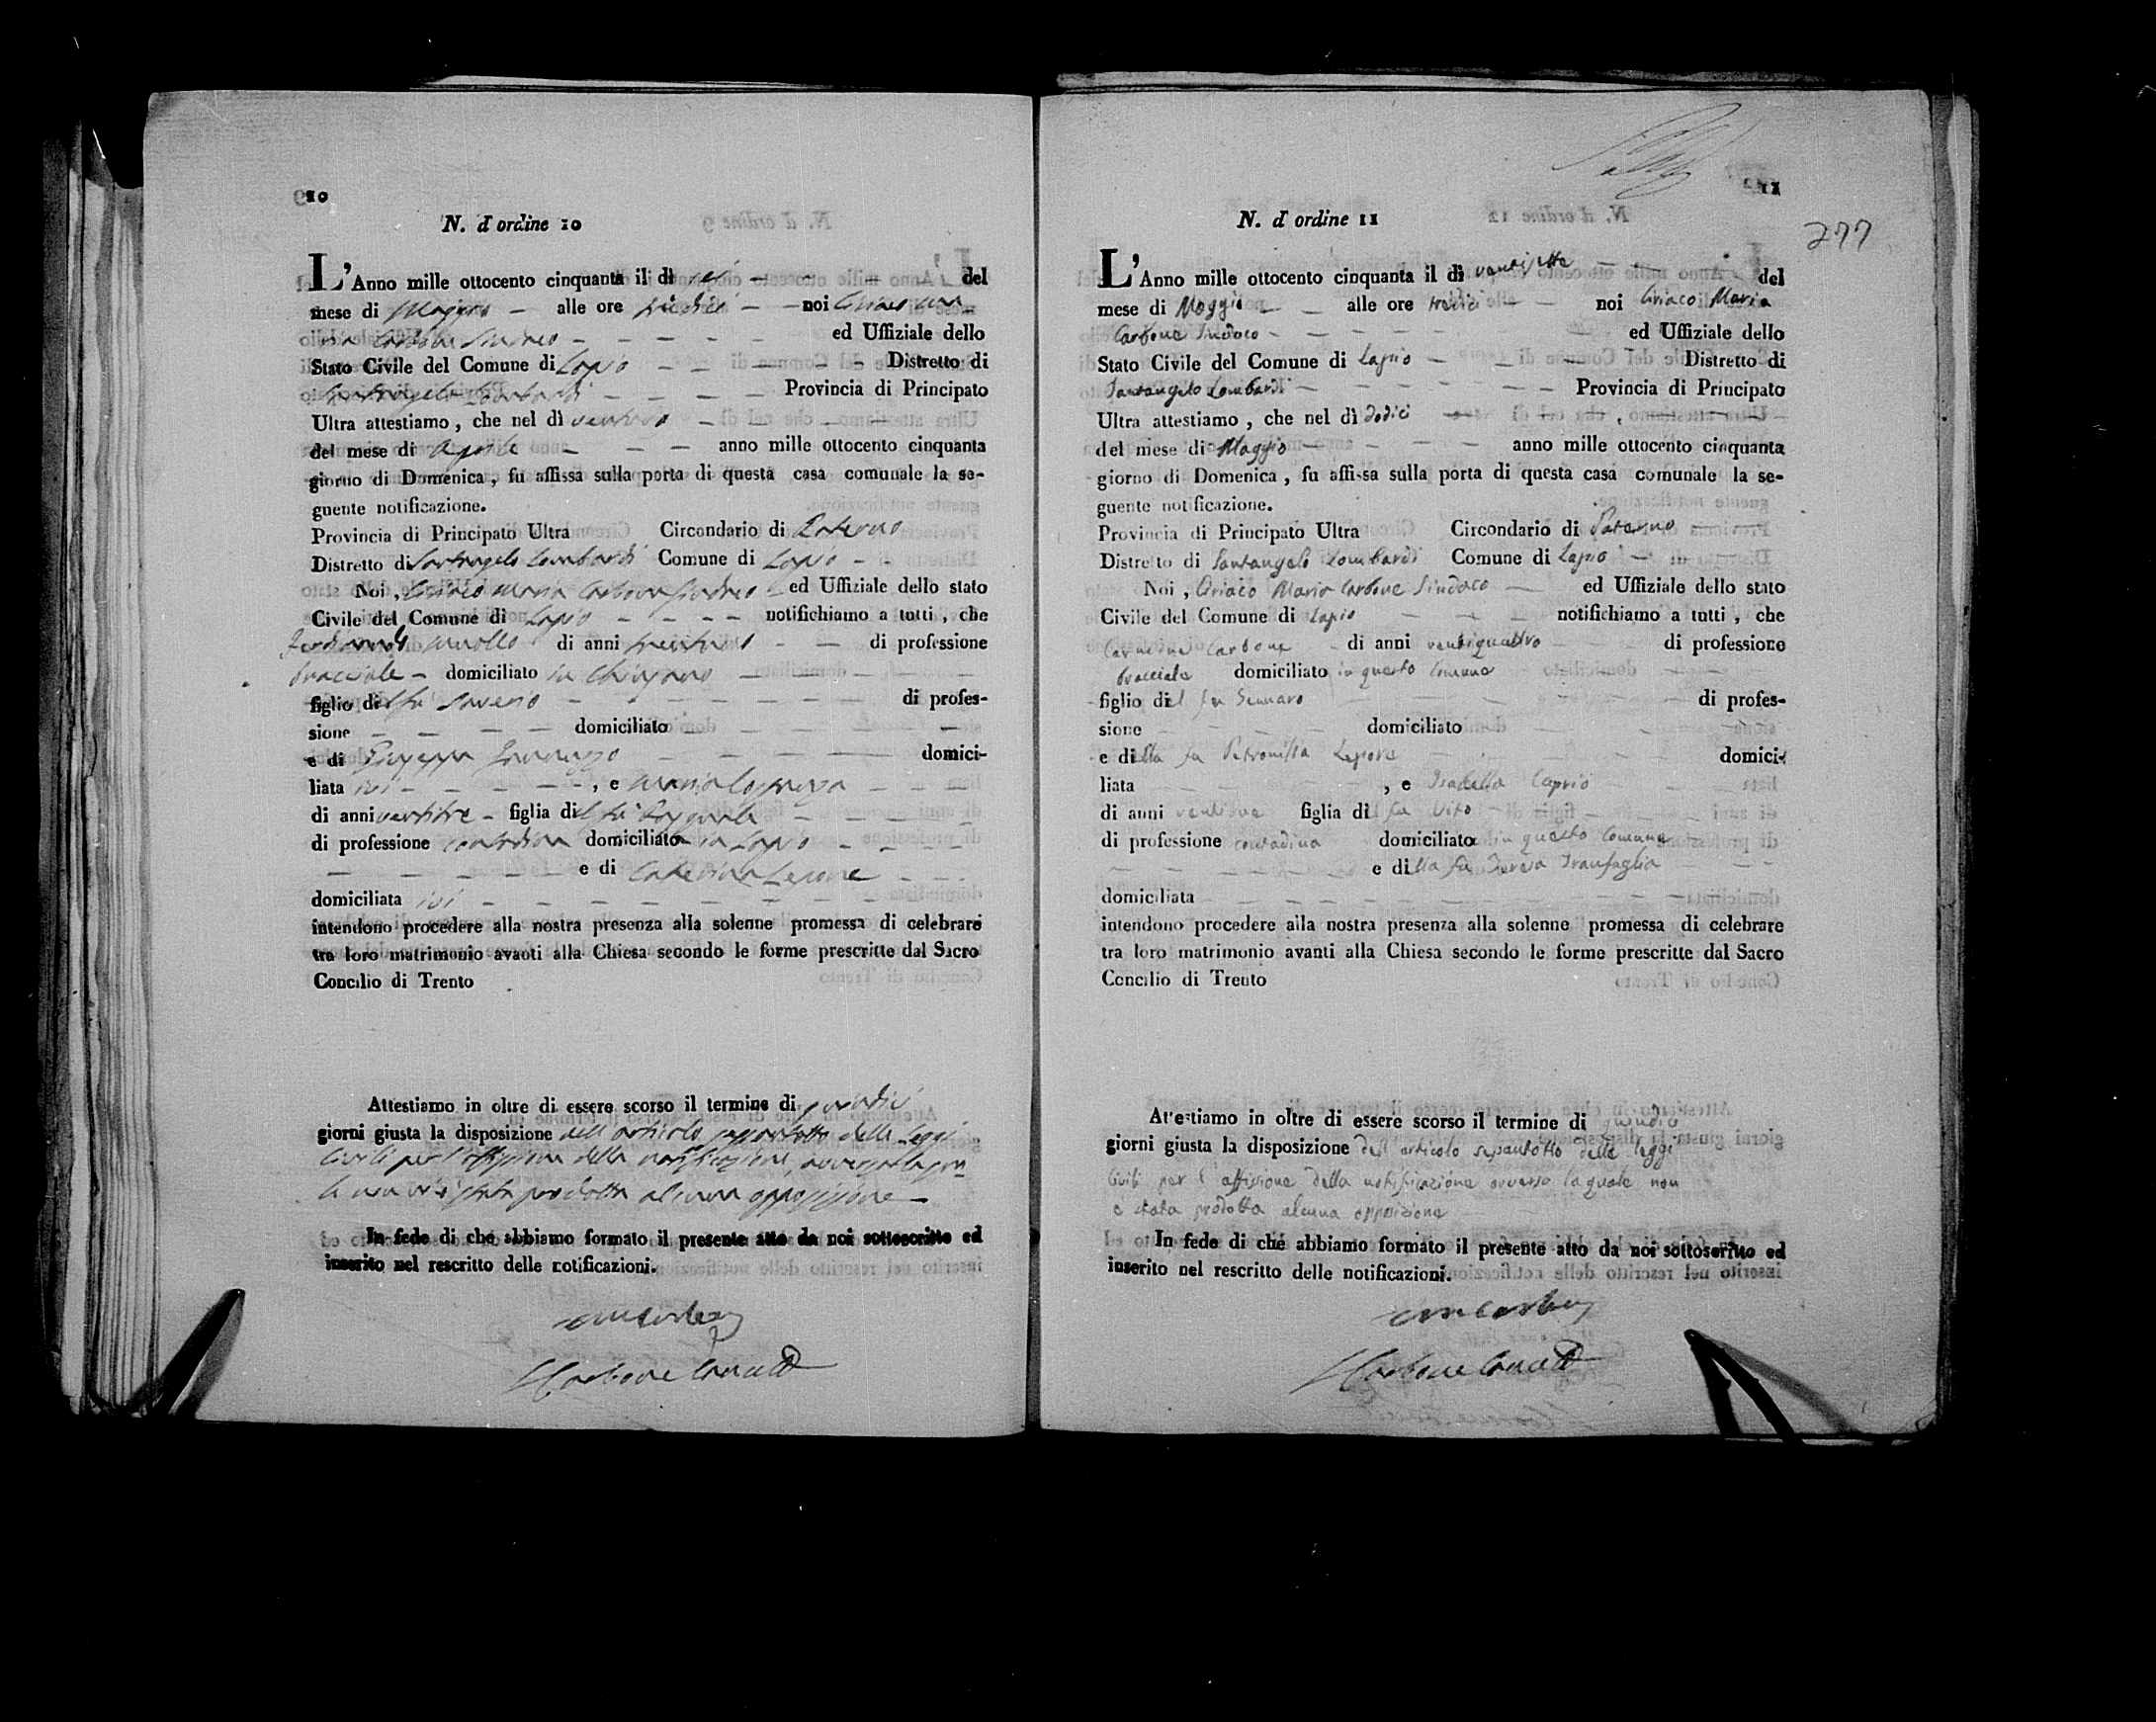 10
N. d'ordine 10
L'Anno mille ottocento cinquanta il dì sei del
mese di Maggio alle ore noi Ciriaco Ma-
ria Carbone Sindaco ed Uffiziale dello
Stato Civile del Comune di Lapio Distretto di
Santangelo Lombardi Provincia di Principato
Ultra attestiamo, che nel dì ventuno
del mese di Aprile anno mille ottocento cinquanta
giorno di Domenica, fu affissa sulla porta di questa casa comunale la se-
guente notificazione.
Provincia di Principato Ultra Circondario di Paterno
Distretto di Santangelo Lombardi Comune di Lapio
Noi, Ciriaco Maria Carbone Sindaco ed Uffiziale dello stato
Civile del Comune di Lapio notifichiamo a tutti, che
di anni di professione
bracciale domiciliato in
figlio del fu Saverio di profes-
sione domiciliato
e di Giuseppa domici-
liata ivi, e Maria
di anni ventitre figlia del fu Pasquale
di professione contadina domiciliata in Lapio
e di Caterina Lepore
domiciliata ivi
intendono procedere alla nostra presenza alla solenne promessa di celebrare
tra loro matrimonio avanti alla Chiesa secondo le forme prescritte dal Sacro
Concilio di Trento
Attestiamo in oltre di essere scorso il termine di quindici
giorni giusta la disposizione dell articolo settantotto delle Leggi
Civili per l'affissione della notificazione ovverso la qua-
le non vi è stata prodotta alcuna opposizione
In fede di ché abbiamo formato il presente atto da noi sottoscritto ed
inserito nel rescritto delle notificazioni.
Carbone
11
277
N. d'ordine 11
L'Anno mille ottocento cinquanta il dì ventisette del
mese di Maggio alle ore tredici noi Ciriaco Maria
Carbone Sindaco ed Uffiziale dello
Stato Civile del Comune di Lapio Distretto di
Santangelo Lombardi Provincia di Principato
Ultra attestiamo, che nel dì dodici
del mese di Maggio anno mille ottocento cinquanta
giorno di Domenica, fu affissa sulla porta di questa casa comunale la se-
guente notificazione.
Provincia di Principato Ultra Circondario di Paterno
Distretto di Santangelo Lombardi Comune di Lapio
Noi, Ciriaco Maria Carbone Sindaco ed Uffiziale dello stato
Civile del Comune di Lapio notifichiamo a tutti, che
Carmine Carbone di anni ventiquattro di professione
bracciale domiciliato in questo Comune
figlio del fu Gennaro di profes-
sione domiciliato
e della fu Petronilla Lepore domici-
liata, e Isabella Caprio
di anni figlia del fu Vito
di professione contadina domiciliata in questo Comune
e della fu Teresa Tranfaglia
domiciliata
intendono procedere alla nostra presenza alla solenne promessa di celebrare
tra loro matrimonio avanti alla Chiesa secondo le forme prescritte dal Sacro
Concilio di Trento
Attestiamo in oltre di essere scorso il termine di quindici
giorni giusta la disposizione dell articolo sepantotto delle leggi
Civili per l affissione della notificazione ovverso la quale non
è stata prodotta alcuna opposizione
In fede di ché abbiamo formato il presente atto da noi sottoscritto ed
inserito nel rescritto delle notificazioni.
Carbone